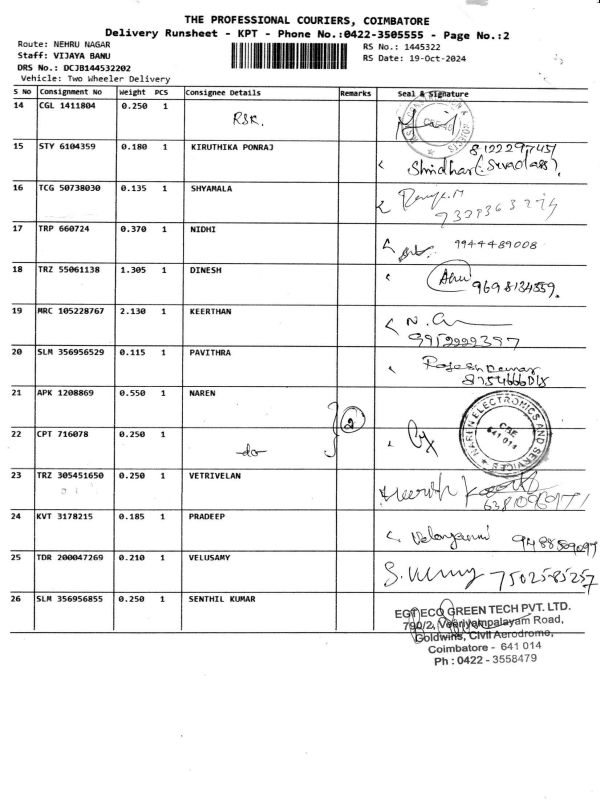 THE PROFESSIONAL COURIERS, COIMBATORE
Delivery Runsheet - KPT - Phone No.:0422-3505555 - Page No.:2
Route: NEHRU NAGAR RS No.: 1445322
Staff: VIJAYA BANU RS Date: 19-Oct-2024
DRS No.: DCJB144532202
Vehicle: Two Wheeler Delivery
S No Consignment No Weight PCS Consignee Details Remarks Seal & Signature
14 CGL 1411804 0.250 1 RSR.
15 STY 6104359 0.180 1 KIRUTHIKA PONRAJ
16 TCG 50738030 0.135 1 SHYAMALA
17 TRP 660724 0.370 1 NIDHI 9944489008
18 TRZ 55061138 1.305 1 DINESH 9698134559.
19 MRC 105228767 2.130 1 KEERTHAN
20 SLM 356956529 0.115 1 PAVITHRA
21 APK 1208869 0.550 1 NAREN 2
NAREN ELECTRONICS AND SERVICES
CBE
641 014
22 CPT 716078 0.250 1 do
23 TRZ 305451650 0.250 1 VETRIVELAN
24 KVT 3178215 0.185 1 PRADEEP
25 TDR 200047269 0.210 1 VELUSAMY 7502585257
26 SLM 356956855 0.250 1 SENTHIL KUMAR
ECO GREEN TECH PVT. LTD.
790/2, Veeriyampalayam Road,
Goldwins, Civil Aerodrome,
Coimbatore - 641 014
Ph : 0422 - 3558479